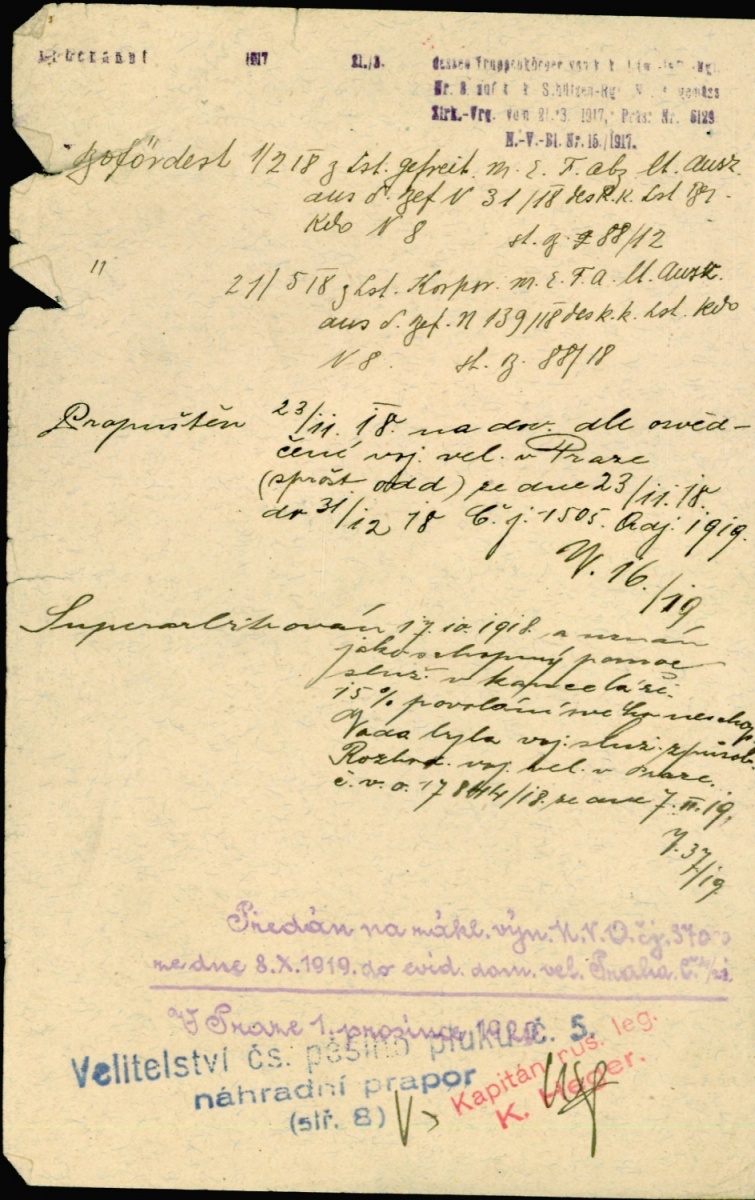 Überzählt 1917 21./3. dessen Truppenkörper von k. k. Ldw.-Inf.-Rgt.
Nr. 8 auf k. k. Schützen-Rgt. Nr. 8 gemäss
Zirk.-Vrg. vom 21. 3. 1917, Präs. Nr. 5129
N.-V.-Bl. Nr. 15./1917.
1/2 18 z Lst. gefreit. m. E. F. abz lt. Ausz.
aus d. Bef N 31/18 des k. k. Lst Bz.
Kdo N 8 st. g. 88/12
" 21/5 18 z Lst. Korpor. m. E. F. a. lt. Ausz.
aus d. Bef. N 139/18 des k. k. Lst. Kdo
N 8. st. g. 88/18
Propuštěn 23/11. 18. na dov. dle osvěd-
čení voj. vel. v Praze
(sprošt. odd) ze dne 23/11. 18.
do 31/12 18 Č. j. 1505. Adj. 1919.
16./19
Superarbitrován 17. 10. 1918. a uznán
jako schopný pomoc
služ. v kanceláři.
15% povolání své ho neschop.
Vada byla voj. služ. způsob.
Rozhod. voj. vel. v Praze.
č. v. o. 17844/18. ze dne 7. II. 19,
37/19
Předán na zákl. výn. M. N. O. čj. 370
ze dne 8. X. 1919. do evid. dom. vel. Praha.
V Praze 1. prosince 1920
Velitelství čs. pěšího pluku č. 5.
náhradní prapor
(stř. 8)
Kapitán rus. leg.
K. Heger.